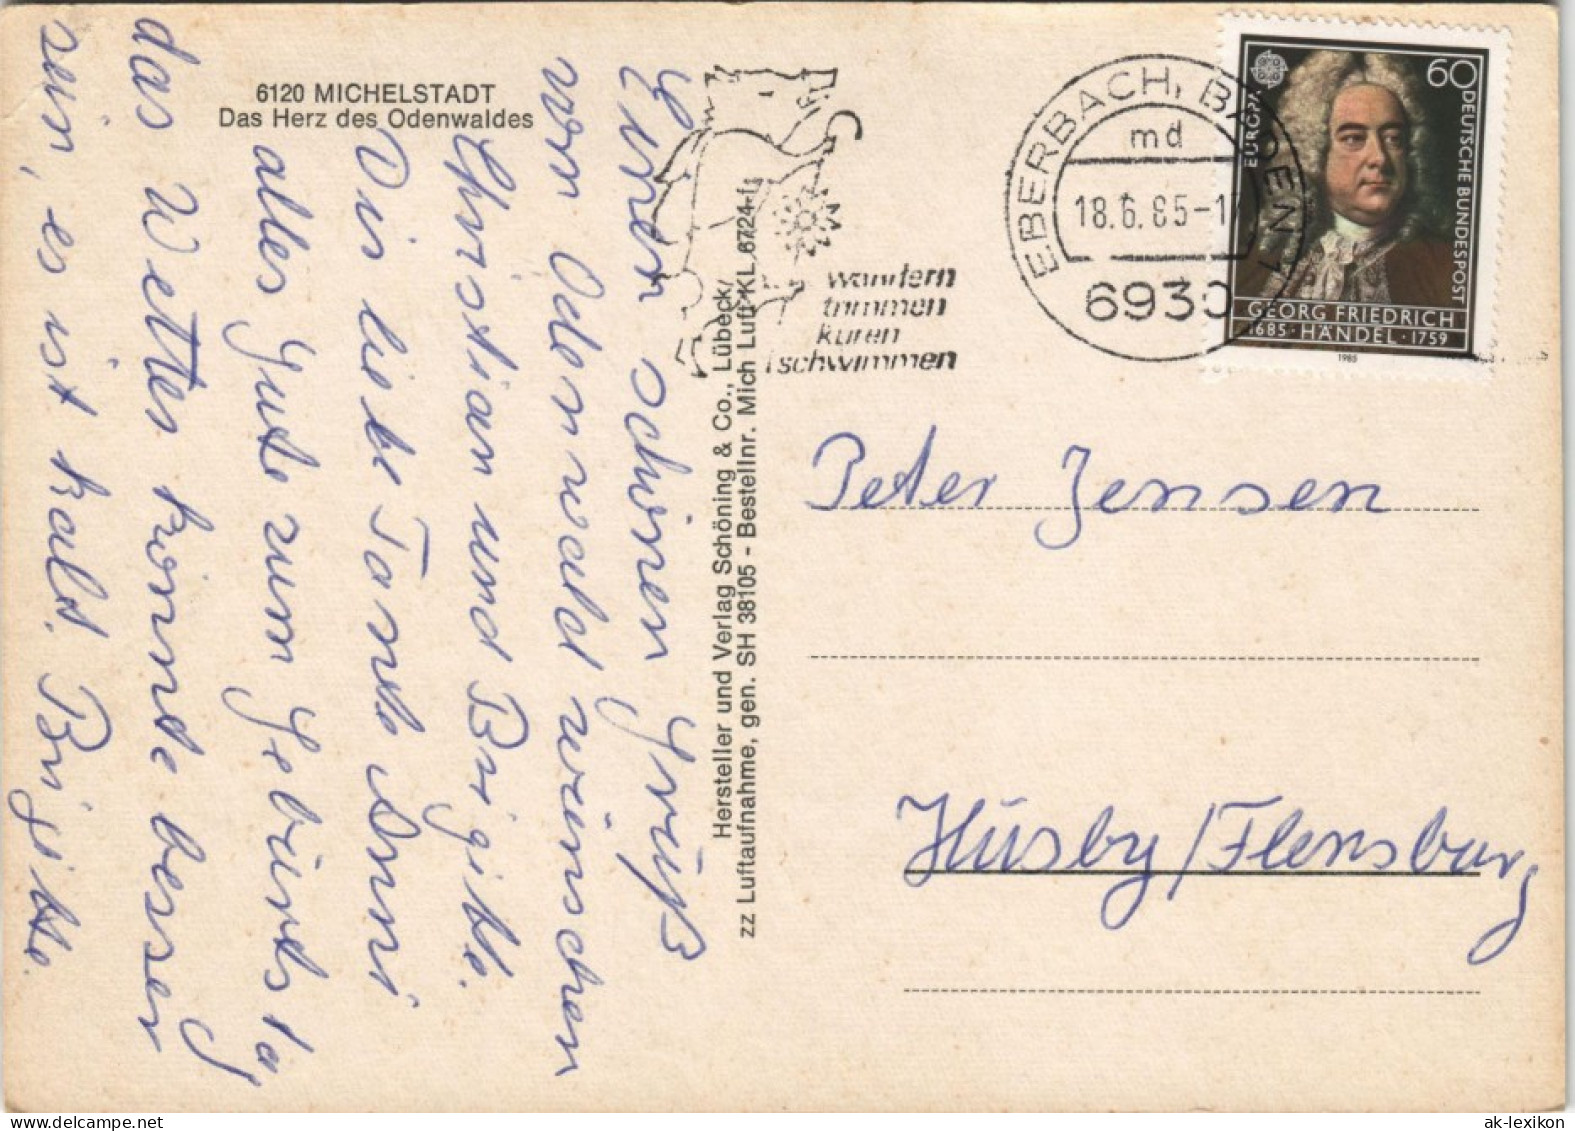 6120 MICHELSTADT
Das Herz des Odenwaldes
Einen schönen Gruß
vom Odenwald wünschen
Christian und Brigitte.
Dir liebe Tante Anni
alles Gute zum Geburtstag,
das Wetter könnte besser
sein, es ist kalt. Brigitte.
Hersteller und Verlag Schöning & Co., Lübeck
zz Luftaufnahme, gen. SH 38105 - Bestellnr. Mich Luft/KL 6724-f
wandern
trimmen
kuren
schwimmen
EBERBACH, BADEN 1
md
18.6.85-1
6930
EUROPA
60
DEUTSCHE BUNDESPOST
GEORG FRIEDRICH
1685 · HÄNDEL · 1759
1985
Peter Jensen
Hüsby/Flensburg
www.delcampe.net
ak-lexikon